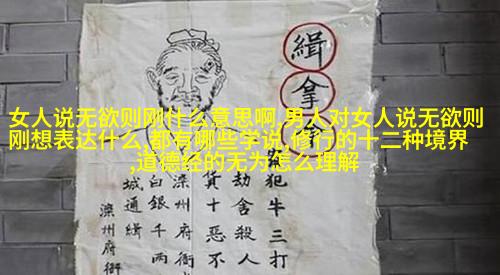 女人说无欲则刚什么意思啊,男人对女人说无欲则
刚想表达什么,都有哪些学说,修行的十二种境界
,道德经的无为怎么理解
緝拿
犯牛三打
劫舍殺人
貨十惡不
滦州府衙
白銀千两
城通緝
滦州府衙